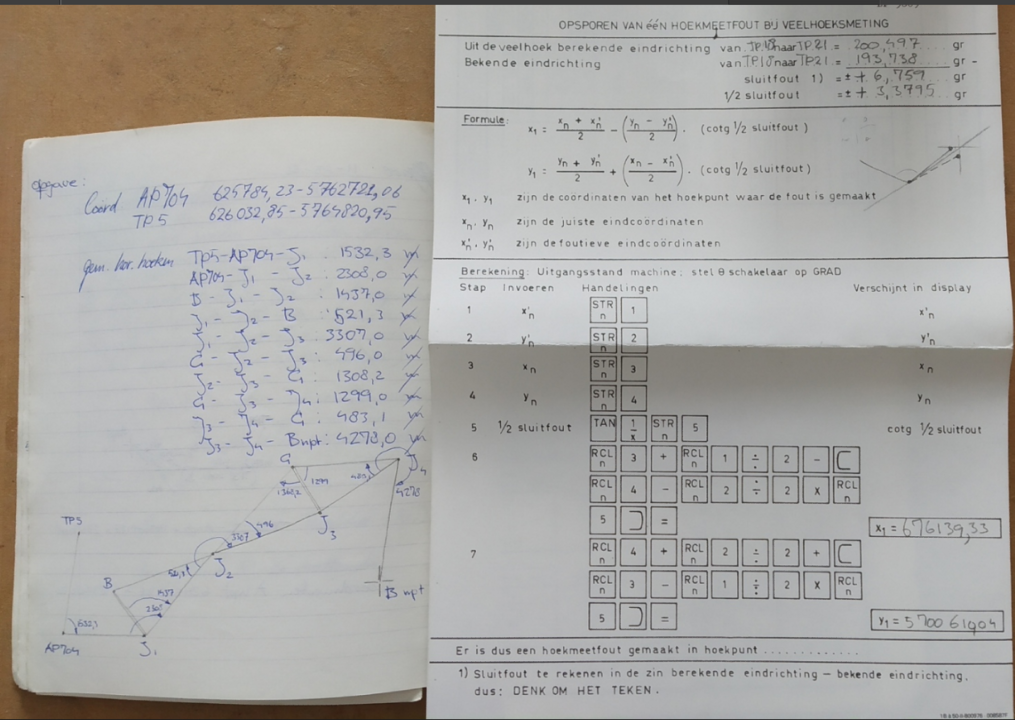 opgave:
Coord AP704 625784,23-5762721,06
TP5 626032,85-5764820,95
gem. hor. hoeken Tp5-AP704-J1 . 1532,3
AP704- J1 - J2 : 2308,0
B - J1 - J2 : 1437,0
J1 - J2 - B : 521,3
J1 - J2 - J3 : 3307,0
G - J2 - J3 : 496,0
J2 - J3 - G : 1308,2
G - J3 - J4 : 1299,0
J3 - J4 - G : 483,1
J3 - J4 - Bnpt : 4278,0
G
J4
1299
4278
496
J3
TP5
3307
J2
B
Bnpt
AP704
J1
OPSPOREN VAN één HOEKMEETFOUT BIJ VEELHOEKSMETING
Uit de veelhoek berekende eindrichting van TP18 naar TP21 = 200,497 gr
Bekende eindrichting van TP18 naar TP21 = 193,738 gr -
sluitfout 1) =± + 6,759 gr
1/2 sluitfout =± + 3,3795 gr
Formule: x1 = xn + x'n / 2 - (yn - y'n / 2) . (cotg 1/2 sluitfout )
y1 = yn + y'n / 2 + (xn - x'n / 2) . (cotg 1/2 sluitfout )
x1 , y1 zijn de coordinaten van het hoekpunt waar de fout is gemaakt
xn, yn zijn de juiste eindcoördinaten
x'n, y'n zijn de foutieve eindcoördinaten
Berekening: Uitgangsstand machine: stel θ schakelaar op GRAD
Stap Invoeren Handelingen Verschijnt in display
1 x'n STR n 1 x'n
2 y'n STR n 2 y'n
3 xn STR n 3 xn
4 yn STR n 4 yn
5 1/2 sluitfout TAN 1/x STR n 5 cotg 1/2 sluitfout
6 RCL n 3 + RCL n 1 ÷ 2 - [
RCL n 4 - RCL n 2 ÷ 2 x RCL n
5 ] = x1 = 676139,33
7 RCL n 4 + RCL n 2 ÷ 2 + [
RCL n 3 - RCL n 1 ÷ 2 x RCL n
5 ] = y1 = 5700619,04
Er is dus een hoekmeetfout gemaakt in hoekpunt . . . . . . . . . . . . .
1) Sluitfout te rekenen in de zin berekende eindrichting – bekende eindrichting,
dus: DENK OM HET TEKEN .